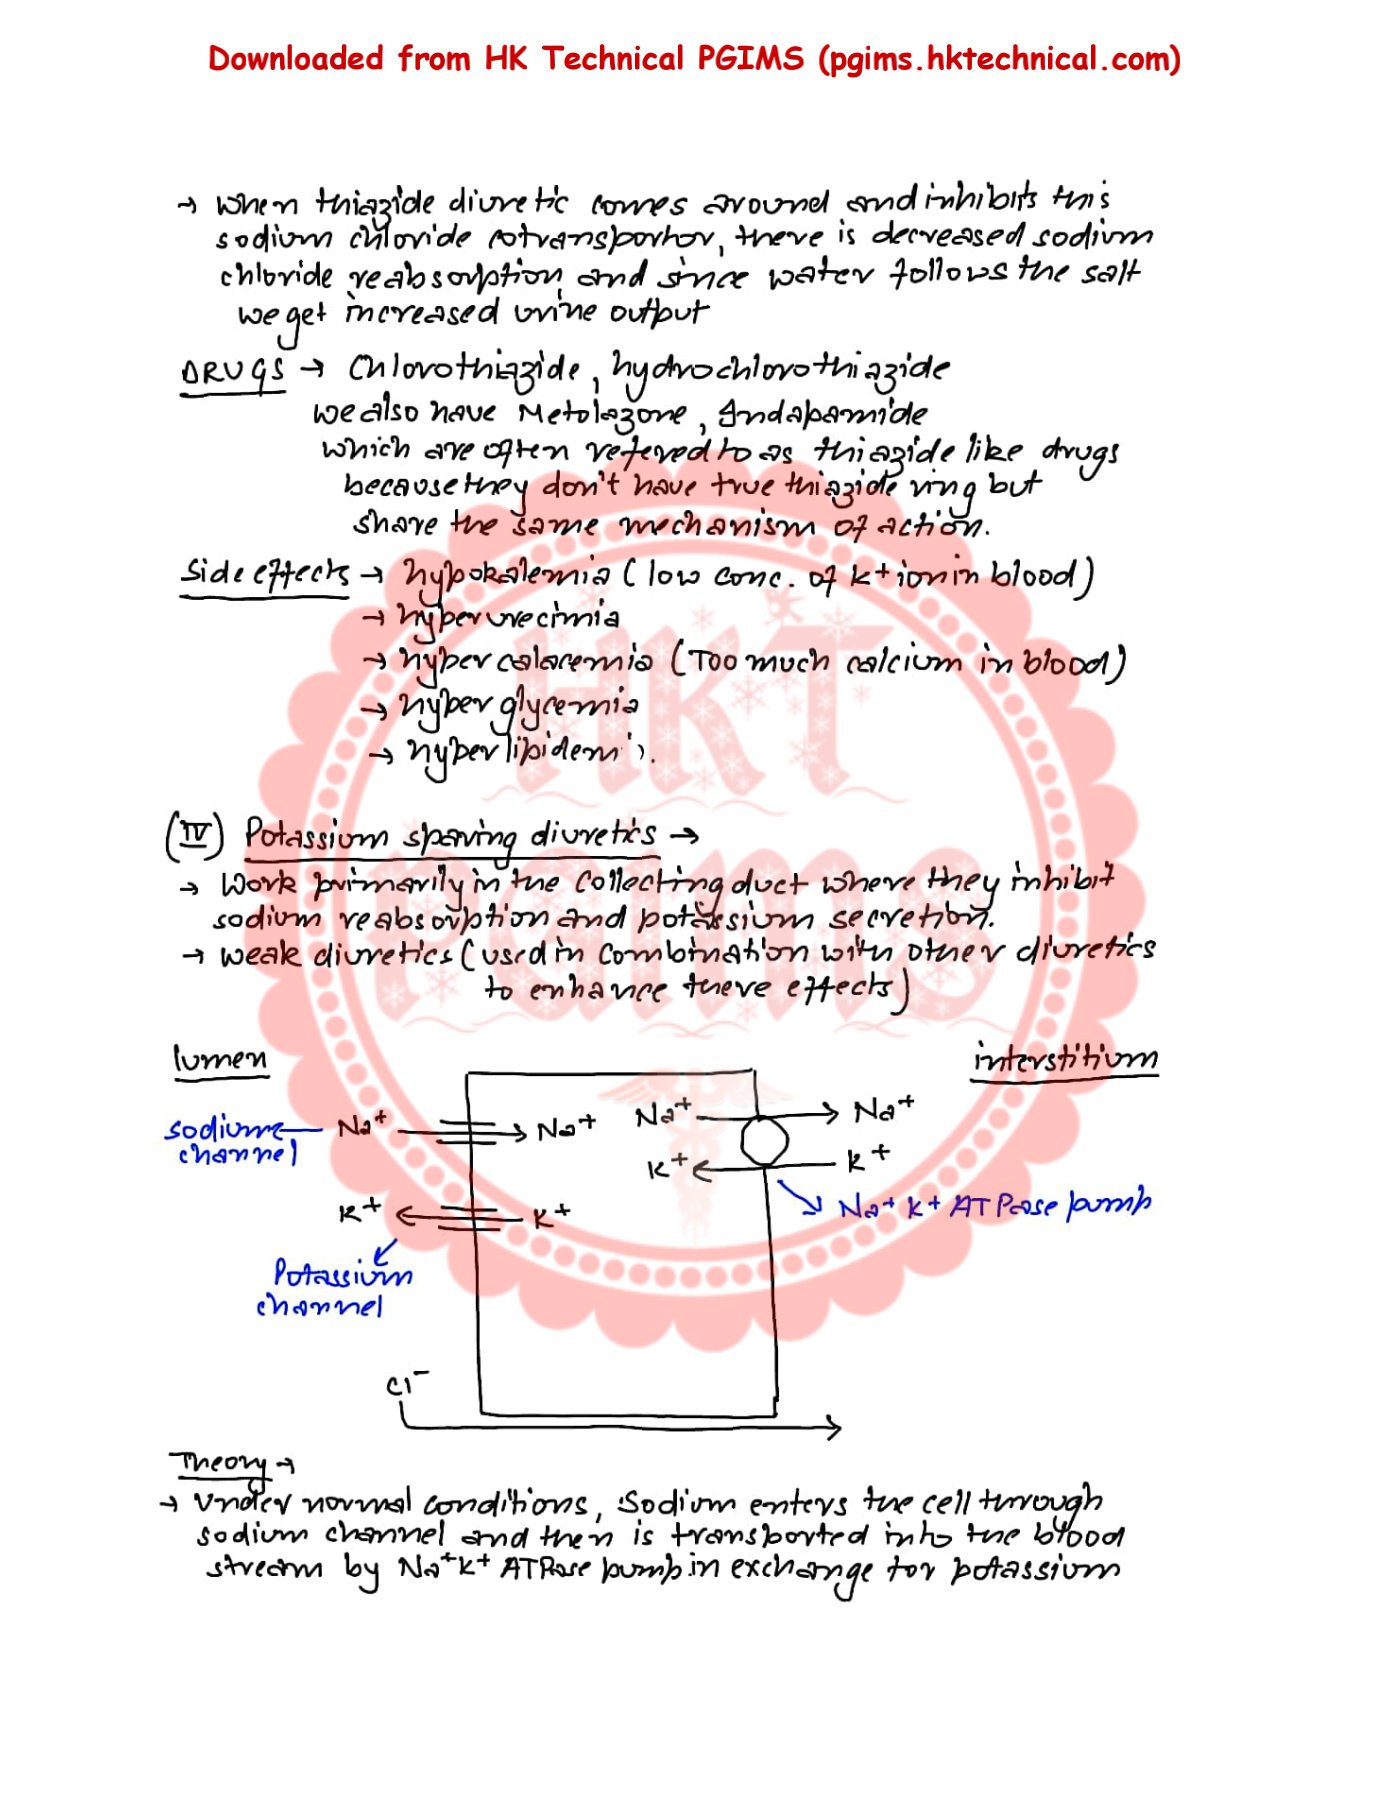 Downloaded from HK Technical PGIMS (pgims.hktechnical.com)
→ When thiazide diuretic comes around and inhibits this
sodium chloride cotransporter, there is decreased sodium
chloride reabsorption, and since water follows the salt
we get increased urine output
DRUGS → Chlorothiazide, hydrochlorothiazide
we also have Metolazone, Indapamide
which are often refered to as thiazide like drugs
because they don't have true thiazide ring but
share the same mechanism of action.
Side effects → hypokalemia (low conc. of K+ ion in blood)
→ hyperurecimia
→ hyper calacemia (Too much calcium in blood)
→ hyper glycemia
→ hyper lipidemi).
(IV) Potassium sparing diuretics →
→ Work primarily in the collecting duct where they inhibit
sodium reabsorption and potassium secretion.
→ weak diuretics (used in combination with other diuretics
to enhance there effects)
lumen interstitium
sodium channel Na+ → Na+ Na+ → Na+
K+ ← K+
K+ ← K+
Na+ K+ ATPase pump
Potassium
channel
Cl-
Theory →
→ Under normal conditions, Sodium enters the cell through
sodium channel and then is transported into the blood
stream by Na+K+ ATPase pump in exchange for potassium
HKT
Pgims